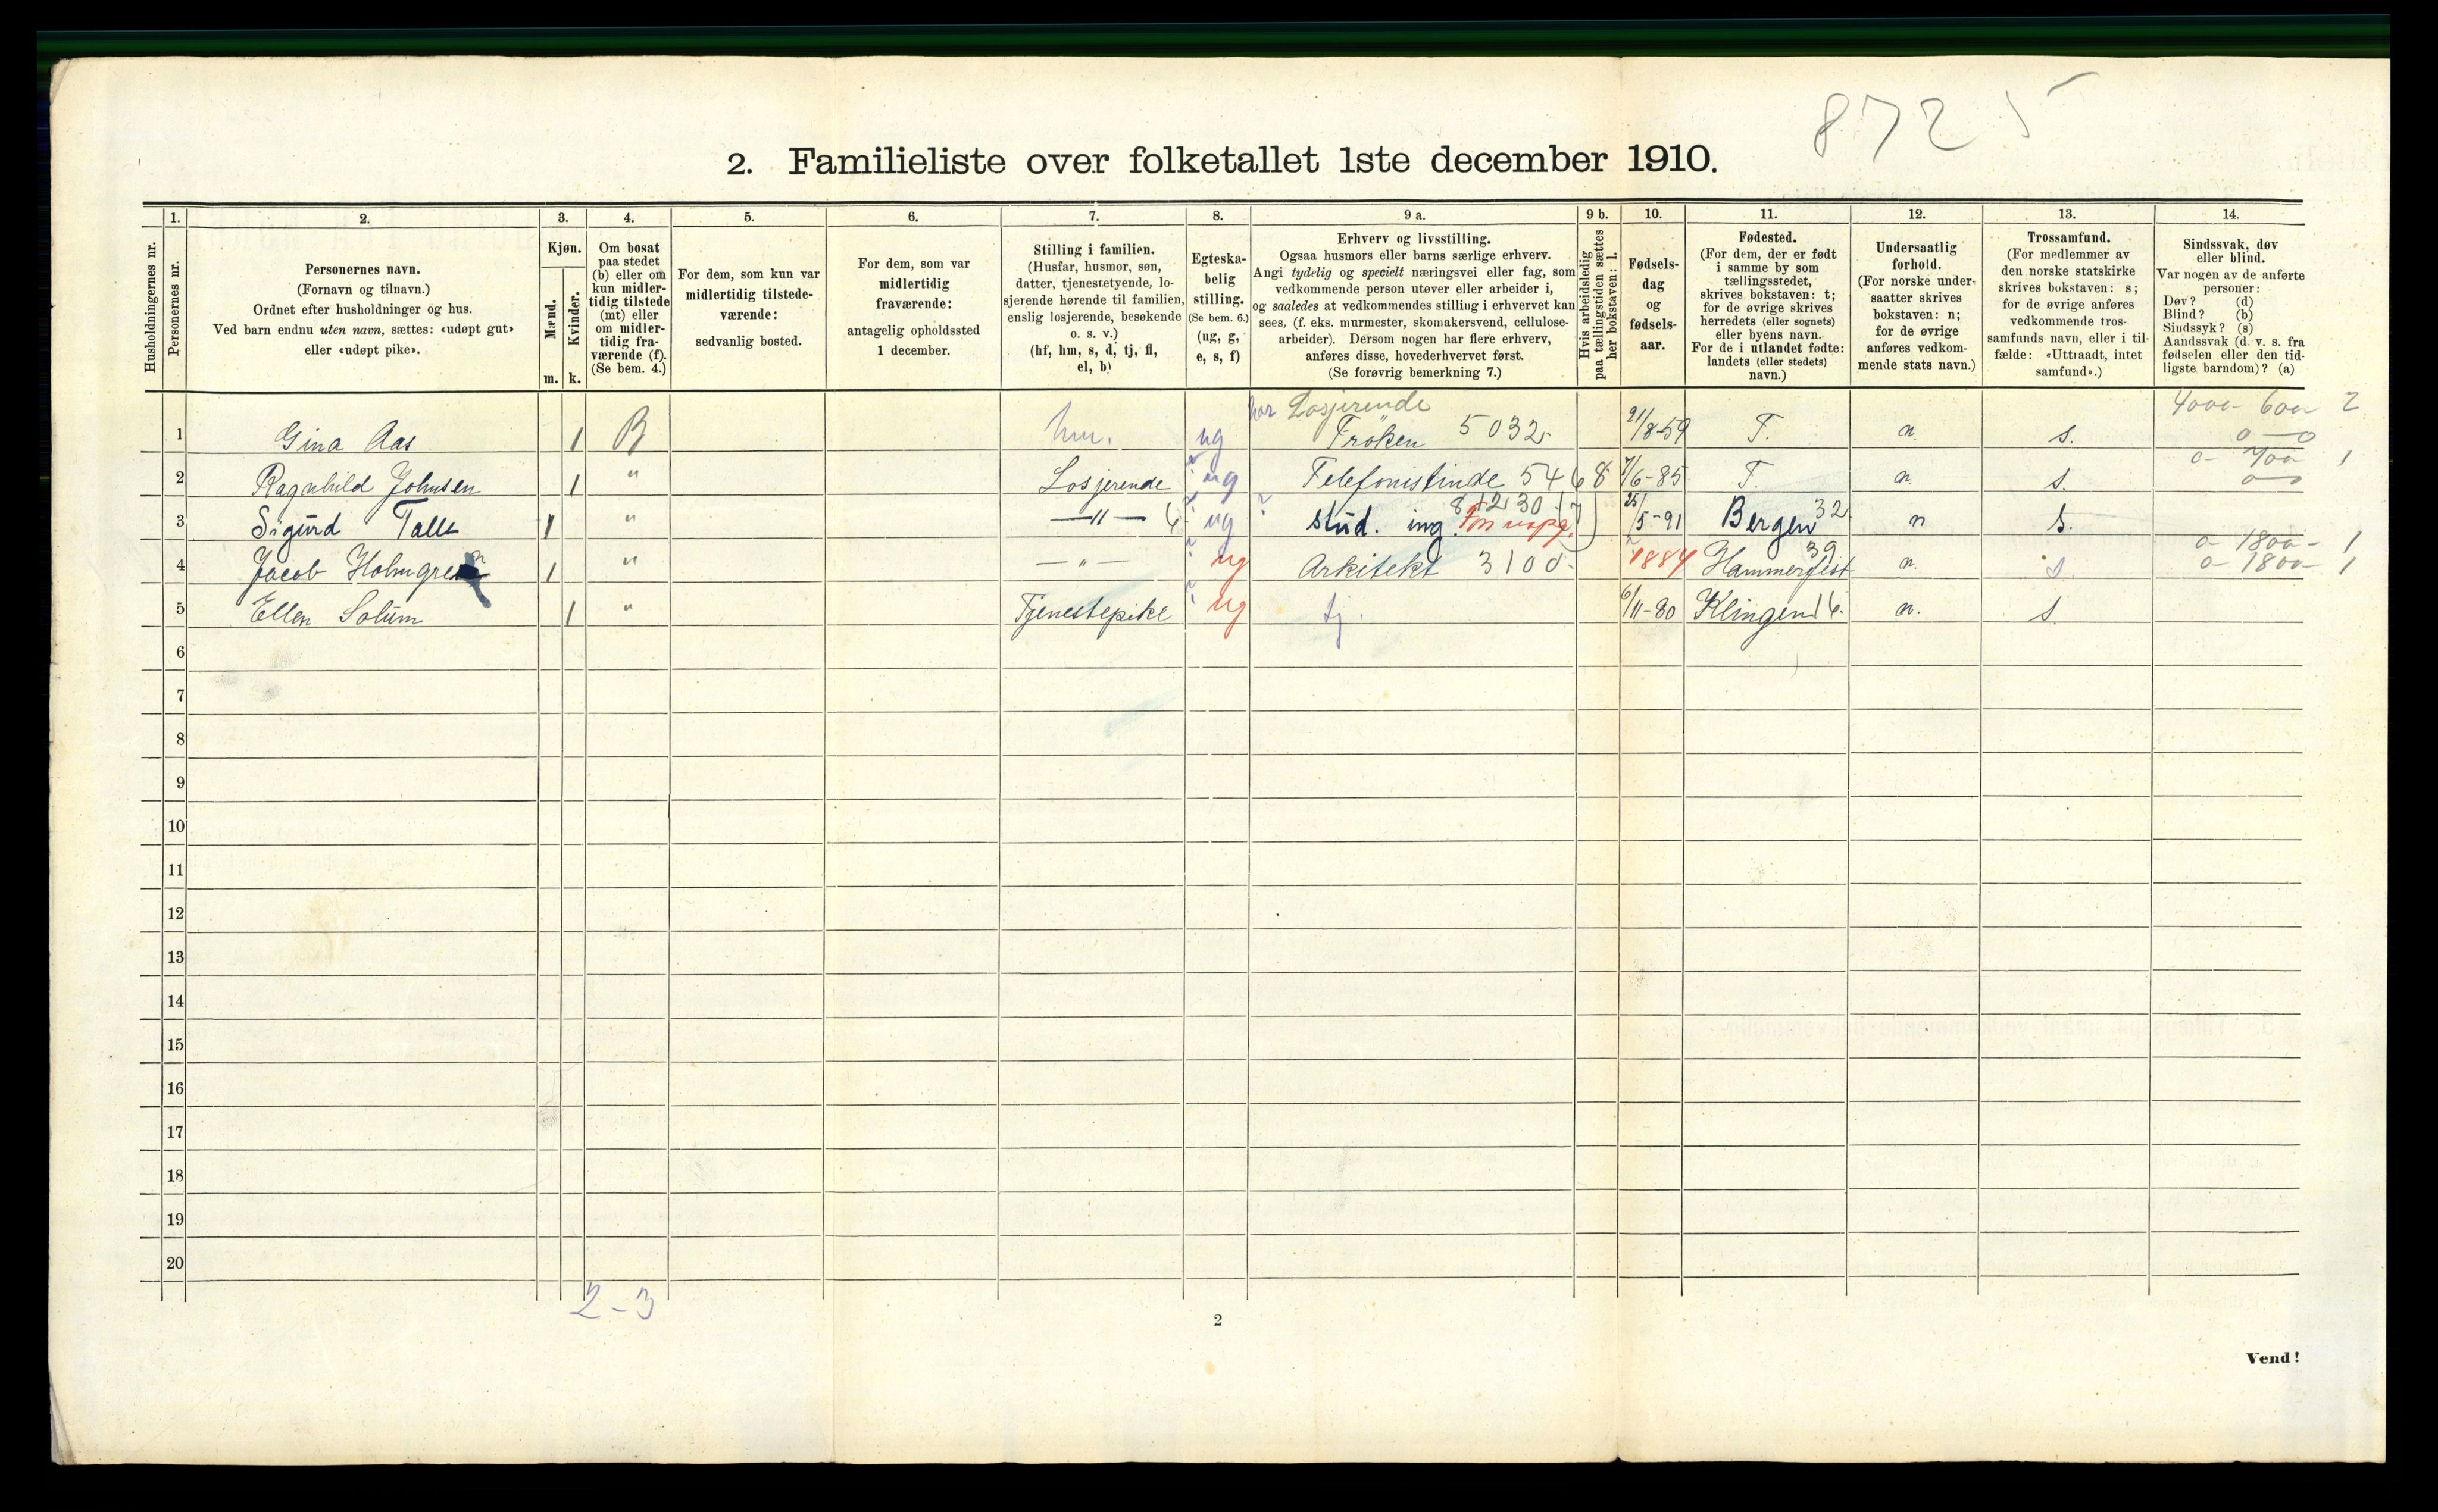 8725
2. Familieliste over folketallet 1ste december 1910.
Husholdningernes nr.
1.
Personernes nr.
2.
Personernes navn.
(Fornavn og tilnavn.)
Ordnet efter husholdninger og hus.
Ved barn endnu uten navn, sættes: «udøpt gut»
eller «udøpt pike».
3.
Kjøn.
Mænd.
Kvinder.
m. k.
4.
Om bosat
paa stedet
(b) eller om
kun midler-
tidig tilstede
(mt) eller
om midler-
tidig fra-
værende (f).
(Se bem. 4.)
5.
For dem, som kun var
midlertidig tilstede-
værende:
sedvanlig bosted.
6.
For dem, som var
midlertidig
fraværende:
antagelig opholdssted
1 december.
7.
Stilling i familien.
(Husfar, husmor, søn,
datter, tjenestetyende, lo-
sjerende hørende til familien,
enslig losjerende, besøkende
o. s. v.)
(hf, hm, s, d, tj, fl,
el, b)
8.
Egteska-
belig
stilling.
(Se bem. 6.)
(ug, g,
e, s, f)
9 a.
Erhverv og livsstilling.
Ogsaa husmors eller barns særlige erhverv.
Angi tydelig og specielt næringsvei eller fag, som
vedkommende person utøver eller arbeider i,
og saaledes at vedkommendes stilling i erhvervet kan
sees, (f. eks. murmester, skomakersvend, cellulose-
arbeider). Dersom nogen har flere erhverv,
anføres disse, hovederhvervet først.
(Se forøvrig bemerkning 7.)
9 b.
Hvis arbeidsledig
paa tællingstiden sættes
her bokstaven: l.
10.
Fødsels-
dag
og
fødsels-
aar.
11.
Fødested.
(For dem, der er født
i samme by som
tællingsstedet,
skrives bokstaven: t;
for de øvrige skrives
herredets (eller sognets)
eller byens navn.
For de i utlandet fødte:
landets (eller stedets)
navn.)
12.
Undersaatlig
forhold.
(For norske under-
saatter skrives
bokstaven: n;
for de øvrige
anføres vedkom-
mende stats navn.)
13.
Trossamfund.
(For medlemmer av
den norske statskirke
skrives bokstaven: s;
for de øvrige anføres
vedkommende tros-
samfunds navn, eller i til-
fælde: «Uttraadt, intet
samfund».)
14.
Sindssvak, døv
eller blind.
Var nogen av de anførte
personer:
Døv? (d)
Blind? (b)
Sindssyk? (s)
Aandssvak (d. v. s. fra
fødselen eller den tid-
ligste barndom)? (a)
har Losjerende 4000- 600 2
1 Gina Aas 1 B hm. ug Fröken 5032. 21/8-59 T. n. s. 0-0
0- 700 1
2 Ragnhild Johnsen 1 " Losjerende ug Telefonistinde 5468 7/6-85 T. n. s. 0-0
3 Sigurd Talle 1 " —"— ug stud. ing. 25/5-91 Bergen 32 n s.
0- 1800- 1
4 Jacob Holmgren 1 " —"— ug Arkitekt 3100. 1884 Hammerfest 39 n. s. 0- 1800- 1
5 Ellen Solum 1 " Tjenestepike ug tj. 6/11-80 Klingen 16. n. s.
6
7
8
9
10
11
12
13
14
15
16
17
18
19
20
2-3
2
Vend!